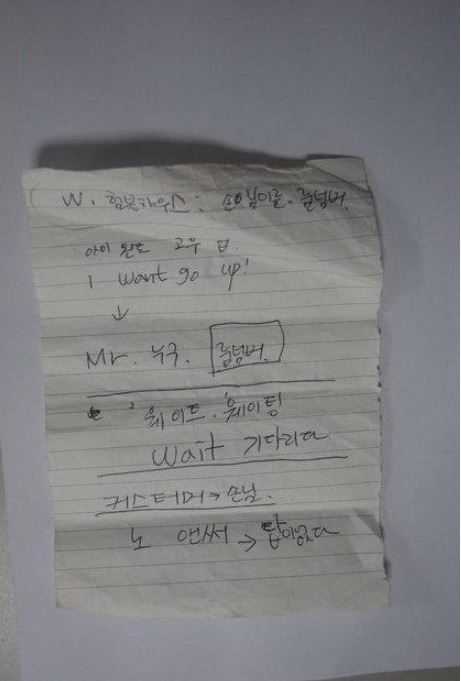 W. 힐튼하우스 : 손님이름. 룸넘버.
아이 원트 고우 업.
I want go up!
↓
Mr. 누구. 룸넘버.
웨이트. 웨이팅
wait 기다리다
커스터머 → 손님.
노 앤써 → 답이없다